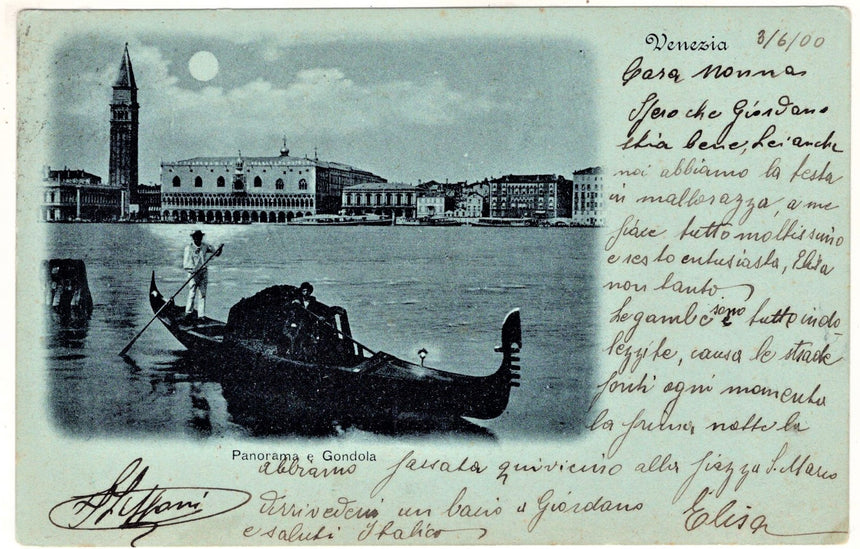 Venezia 3/6/00
Cara Nonna
Spero che Giordano
stia bene, Lei anche
noi abbiamo la testa
in mallorazza, a me
piace tutto moltissimo
e resto entusiasta, Elisa
non tanto
Le gambe sono tutte indo
lezzite, causa le strade
ponti ogni momento
la prima notte la
Panorama e Gondola
abbiamo passata quivicino alla piazza S. Marco
Arrivederci un bacio a Giordano
e saluti Italico
Elisa